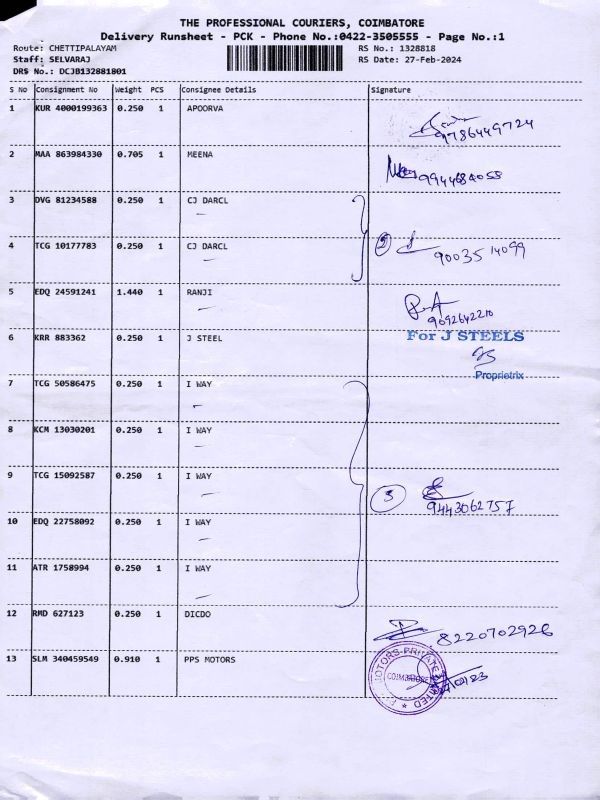 THE PROFESSIONAL COURIERS, COIMBATORE
Delivery Runsheet - PCK - Phone No.:0422-3505555 - Page No.:1
Route: CHETTIPALAYAM RS No.: 1328818
Staff: SELVARAJ RS Date: 27-Feb-2024
DRS No.: DCJB132881801
S No Consignment No Weight PCS Consignee Details Signature
1 KUR 4000199363 0.250 1 APOORVA
9786449724
2 MAA 863984330 0.705 1 MEENA
9944684058
3 DVG 81234588 0.250 1 CJ DARCL
4 TCG 10177783 0.250 1 CJ DARCL
2 9003514099
5 EDQ 24591241 1.440 1 RANJI
9092642210
6 KRR 883362 0.250 1 J STEEL
For J STEELS
Proprietrix
7 TCG 50586475 0.250 1 I WAY
8 KCM 13030201 0.250 1 I WAY
9 TCG 15092587 0.250 1 I WAY
5 9443062757
10 EDQ 22758092 0.250 1 I WAY
11 ATR 1758994 0.250 1 I WAY
12 RMD 627123 0.250 1 DICDO
8220702926
13 SLM 340459549 0.910 1 PPS MOTORS
MOTORS PRIVATE LIMITED
COIMBATORE